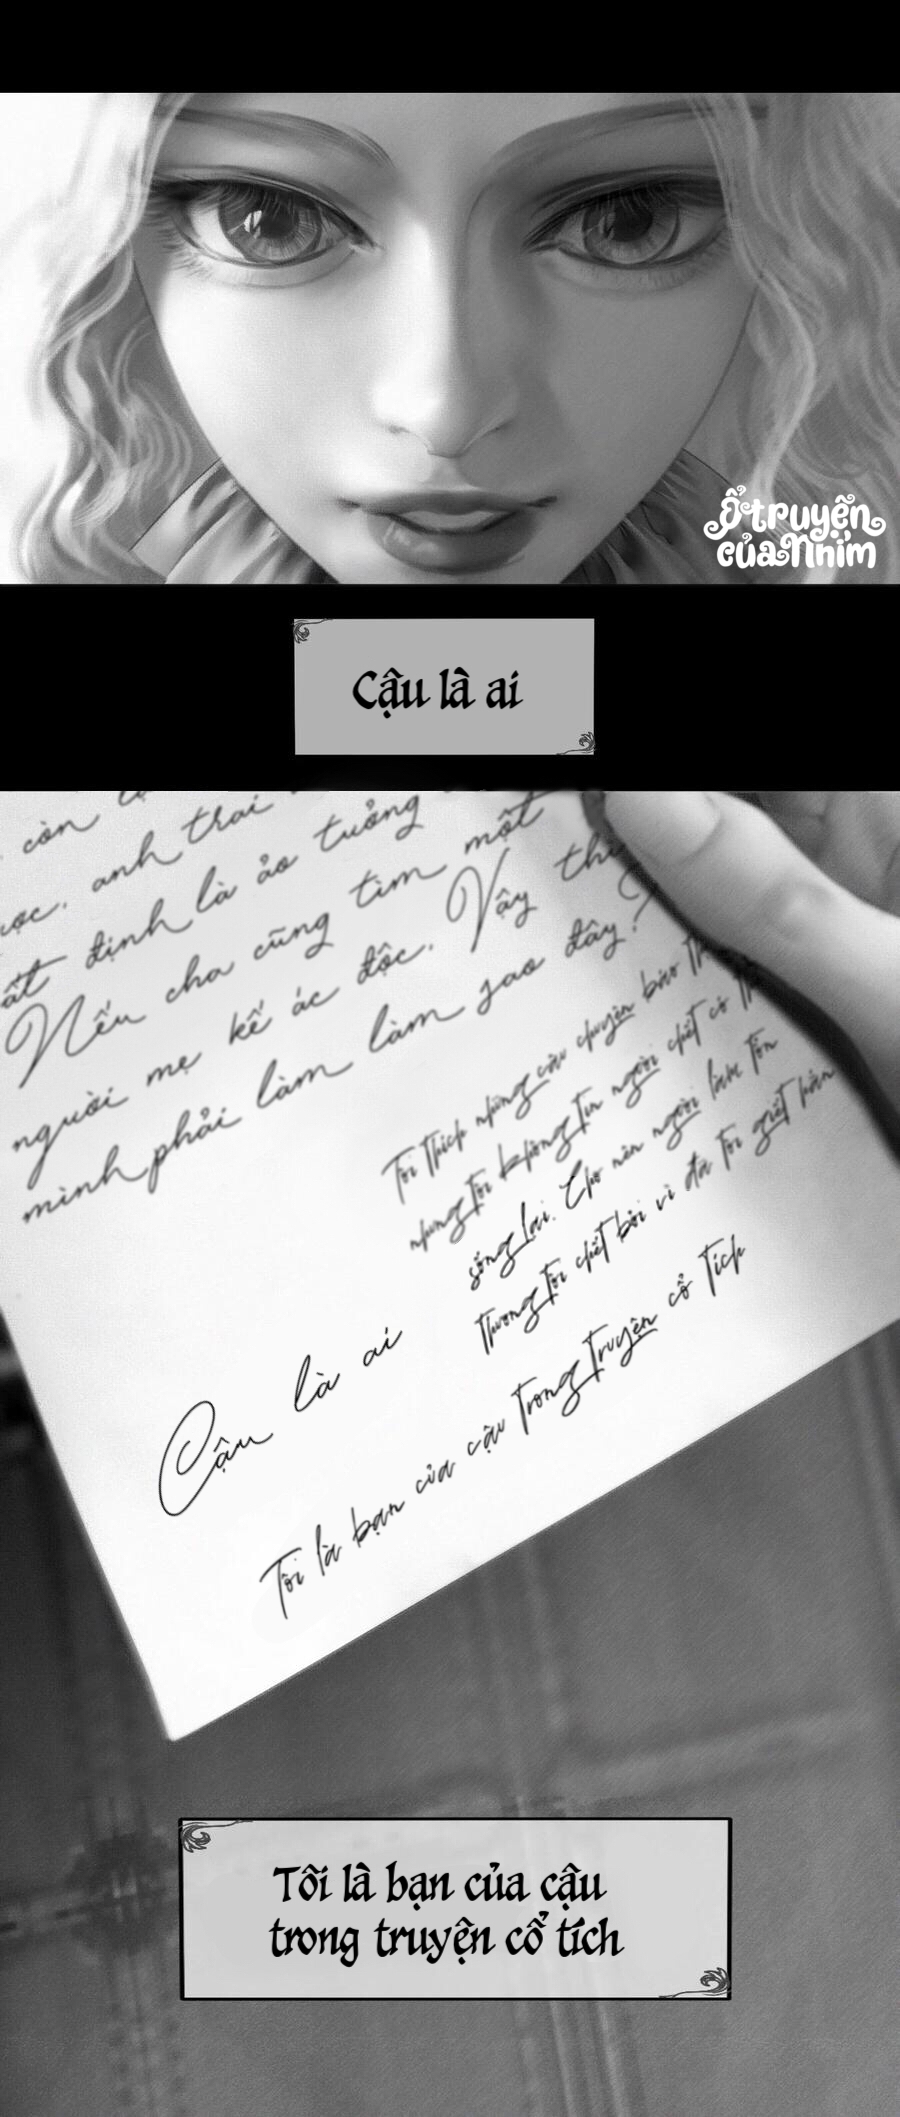 Ổ truyện
của Nhím
Cậu là ai
còn
ược, anh trai
ất định là ảo tưởng
Nếu cha cũng tìm một
người mẹ kế ác độc. Vậy thì
mình phải làm làm sao đây?
Tôi thích những câu chuyện báo
nhưng tôi không tin người chết có
sống lại. Cho nên người làm tổn
thương tôi chết bởi vì đã tôi giết
Cậu là ai
Tôi là bạn của cậu trong truyện cổ tích
Tôi là bạn của cậu
trong truyện cổ tích